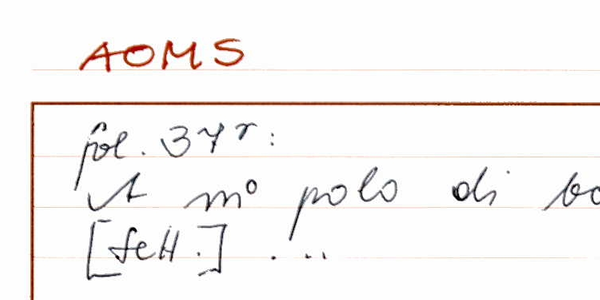 AOMS
fol. 37r:
A m° polo di bo
[sett.] ...